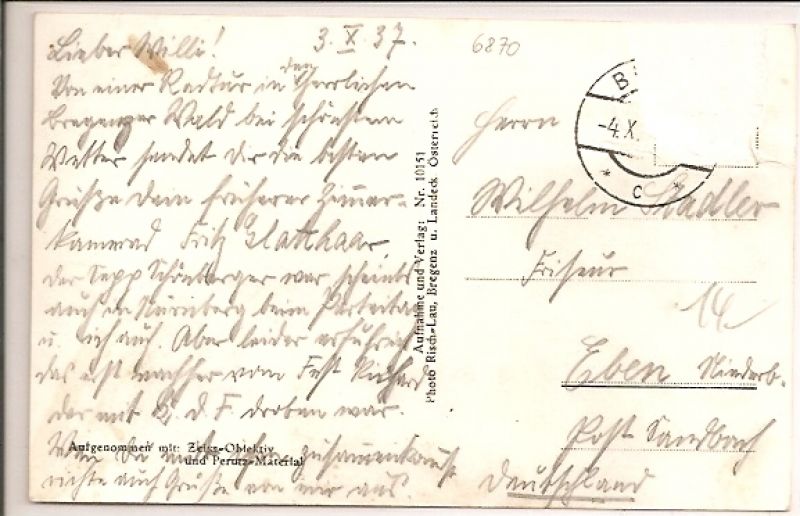 Lieber Willi! 3. X. 37.
Von einer Radtur in den herrlichen
Bregenzer Wald bei schönstem
Wetter sendet dir die besten
Grüße dein früherer Zimmer-
kamerad Fritz Glatthaar,
der Sepp Schönberger war scheints
auch in Nürnberg beim Parteitag
u. ich auch. Aber leider erfuhr ich
das erst nachher vom Fest Richard
der mit K. d. F. droben war.
Wenn Du mit zusammenkommst
richte auch Grüße von mir aus.
Aufgenommen mit: Zeiss-Objektiv
und Perutz-Material
Aufnahme und Verlag: Nr. 10151
Photo Risch-Lau, Bregenz u. Landeck Österreich
6870
B
-4.X.
* c *
Herrn
Wilhelm Stadler
Friseur
14
Eben Niederb.
Post Sandbach
Deutschland